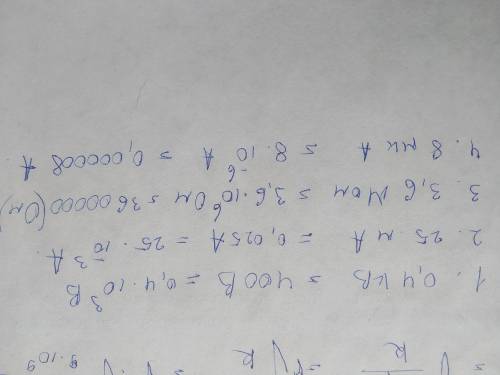 9·10⁹
1. 0,4 кВ = 400В = 0,4·10³ В
2. 25 мА = 0,025А = 25·10⁻³ А.
3. 3,6 Мом = 3,6·10⁶ Ом = 3600000 (Ом)
4. 8 мк А = 8·10⁻⁶ А = 0,000008 А